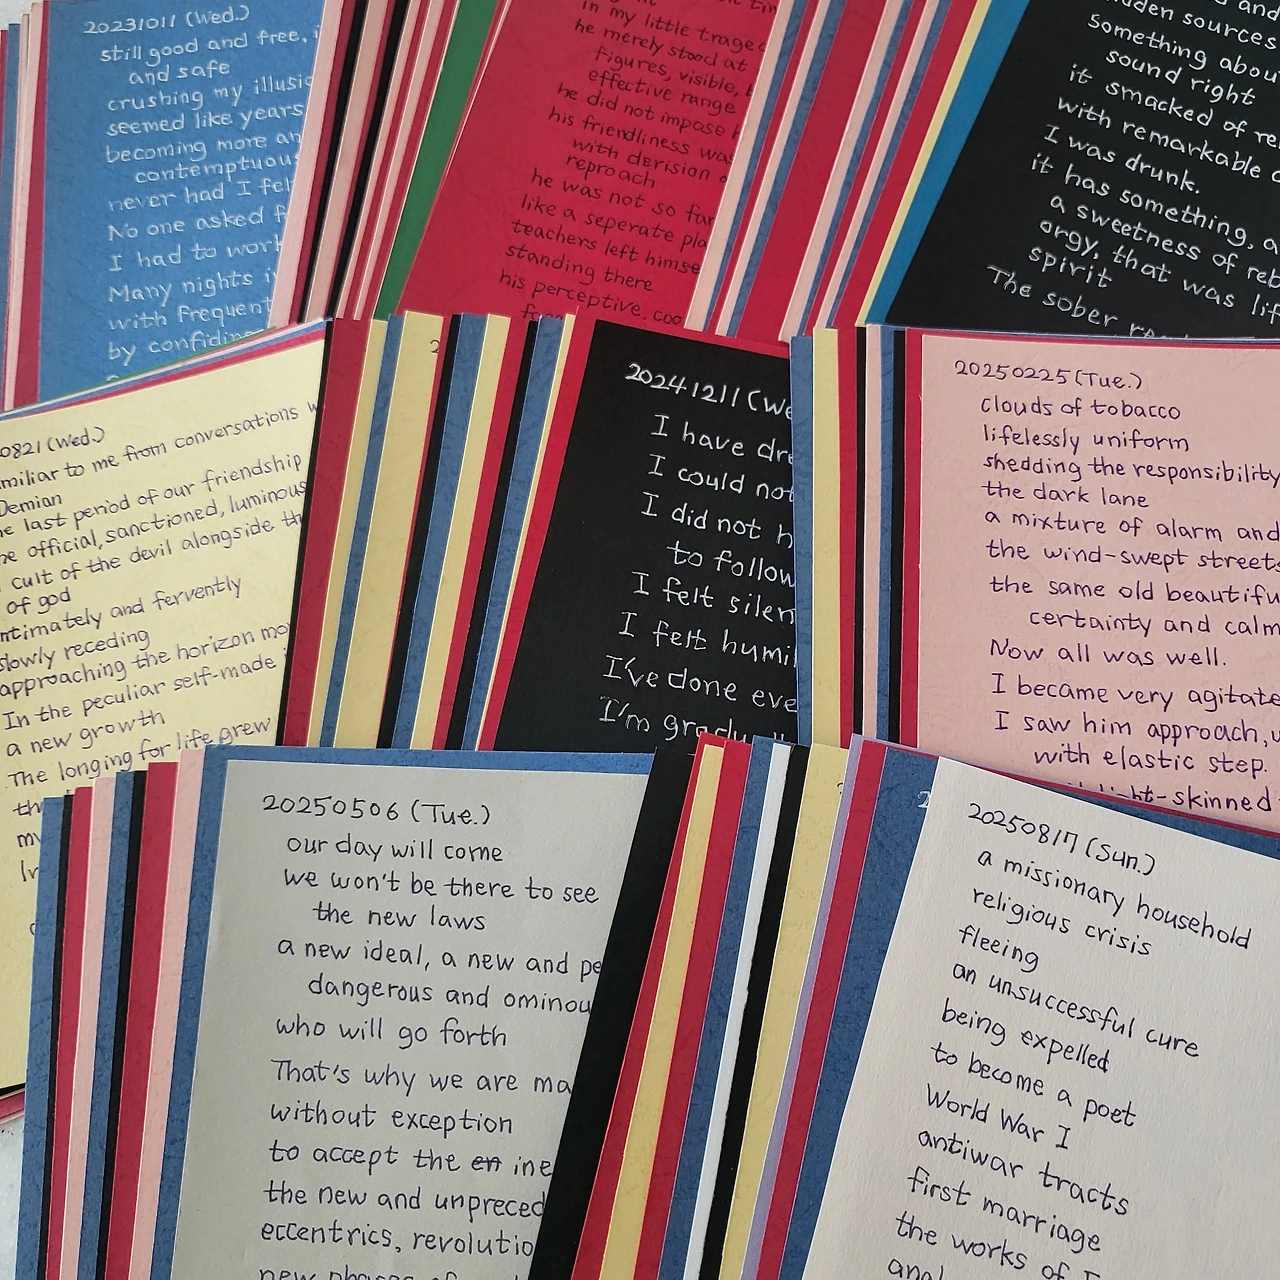 20231011 (Wed.)
still good and free.
and safe
crushing my
seemed like years
becoming more
contemptuous
never had I
No one asked
I had to work
Many nights
with frequent
by confiding
in my little
he merely stood at
figures, visible,
effective range
he did not impose
his friendliness was
with derision
reproach
he was not so far
like a seperate
teachers left
standing there
his perceptive.
and
sources
Something about
sound right
it smacked of
with remarkable
I was drunk.
it has something,
a sweetness of
orgy, that was
spirit
The sober
0821 (Wed.)
miliar to me from conversations
Demian
last period of our friendship
official, sanctioned, luminous
cult of the devil alongside
of god
ntimately and fervently
slowly receding
approaching the horizon
In the peculiar self-made
a new growth
The longing for life grew
20241211 (We
I have
I could not
I did not
to follow
I felt
I felt
I've done
I'm
20250225 (Tue.)
clouds of tobacco
lifelessly uniform
shedding the responsibility
the dark lane
a mixture of alarm and
the wind-swept streets
the same old beautifu
certainty and calm
Now all was well.
I became very agitate
I saw him approach,
with elastic step.
light-skinned
20250506 (Tue.)
our day will come
we won't be there to see
the new laws
a new ideal, a new and
dangerous and ominou
who will go forth
That's why we are
without exception
to accept the en ine
the new and unpreced
eccentrics, revolutio
new phases of
20250817 (Sun.)
a missionary household
religious crisis
fleeing
an unsuccessful cure
being expelled
to become a poet
World War I
antiwar tracts
first marriage
the works of